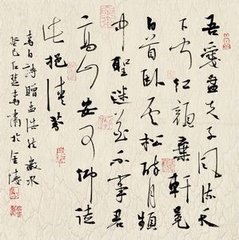 吾愛孟夫子風流天
下聞紅顏棄軒冕
白首臥松雲醉月頻
中聖迷花不事君
高山安可仰徒
此揖清芬
李白詩贈孟浩然歲次
癸巳